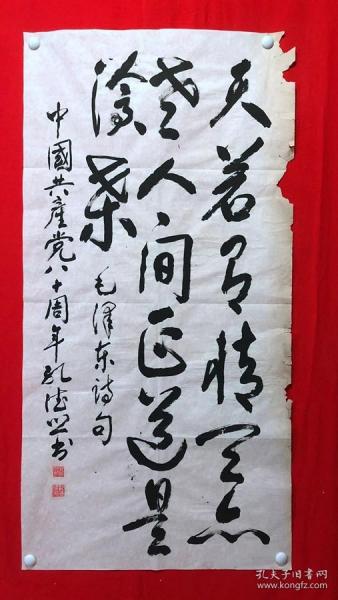 天若有情天亦
老人间正道是
滄桑
毛澤东诗句
中國共產党八十周年孔德书
孔夫子旧书网
www.kongfz.com